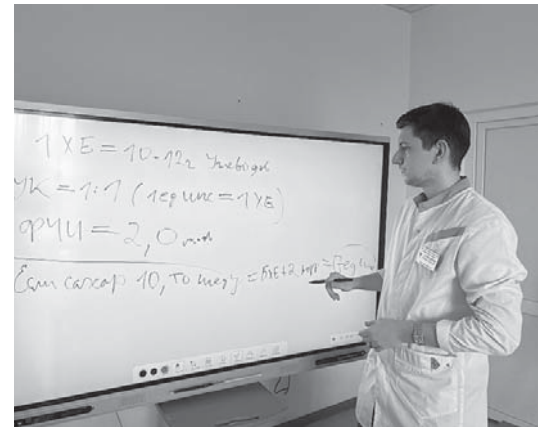 1 ХЕ = 10-12г Углеводов
УК = 1:1 (1ед инс = 1 ХЕ)
ФЧИ = 2,0
Если сахар 10, то = 5ХЕ+2 =